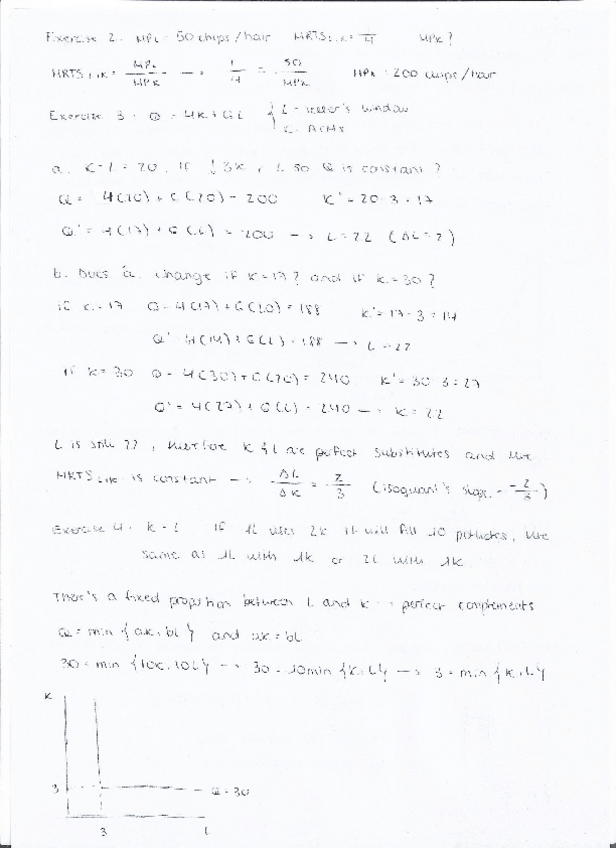 Exercise 2. MPL = 50 chips/hour MRTS L,K = 1/4 MPK?
MRTS L,K = MPL/MPK → 1/4 = 50/MPK MPK = 200 chips/hour
Exercise 3. Q = 4K + 6L { L - teller's window
K - ATMs
a. K=L=20. If ↓3K, L so Q is constant?
Q = 4(20) + 6(20) = 200 K' = 20-3 = 17
Q' = 4(17) + 6(L) = 200 → L = 22 (ΔL=2)
b. Does a. change if K=17? and if K=30?
if K=17 Q = 4(17) + 6(20) = 188 K' = 17-3 = 14
Q' = 4(14) + 6(L) = 188 → L = 22
If K=30 Q = 4(30) + 6(20) = 240 K' = 30-3 = 27
Q' = 4(27) + 6(L) = 240 → K = 22
L is still 22, therefore K & L are perfect substitutes and the
MRTS L,K is constant → ΔL/ΔK = 2/3 (isoquant's slope = -2/3)
Exercise 4. K-L If 1L uses 2K it will fill 10 , the
same as 1L with 1K or 2L with 1K.
There's a fixed proportion between L and K → perfect complements
Q = min {aK, bL} and aK = bL
30 = min {10K, 10L} → 30 = 10min {K, L} → 3 = min {K, L}
K
3 Q = 30
3 L